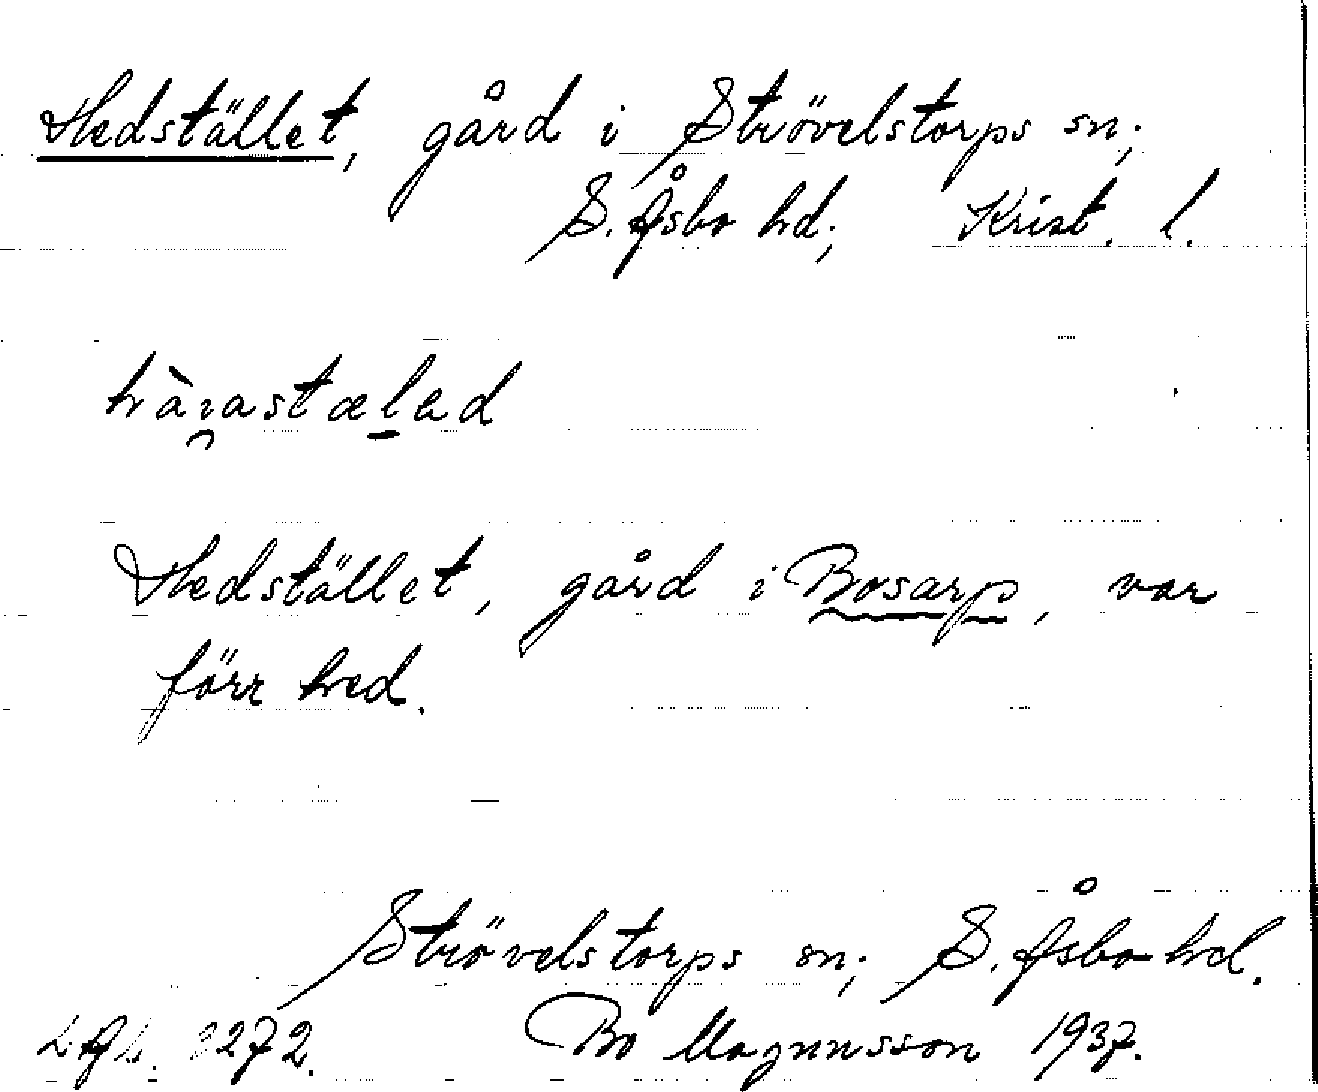 Hedstället, gård i Strövelstorps sn;
S. Åsbo hd; Krist. l.
Hedstället, gård i Bosarp, var
förr hed.
Strövelstorps sn; S. Åsbo hd.
Bo Magnusson 1937.